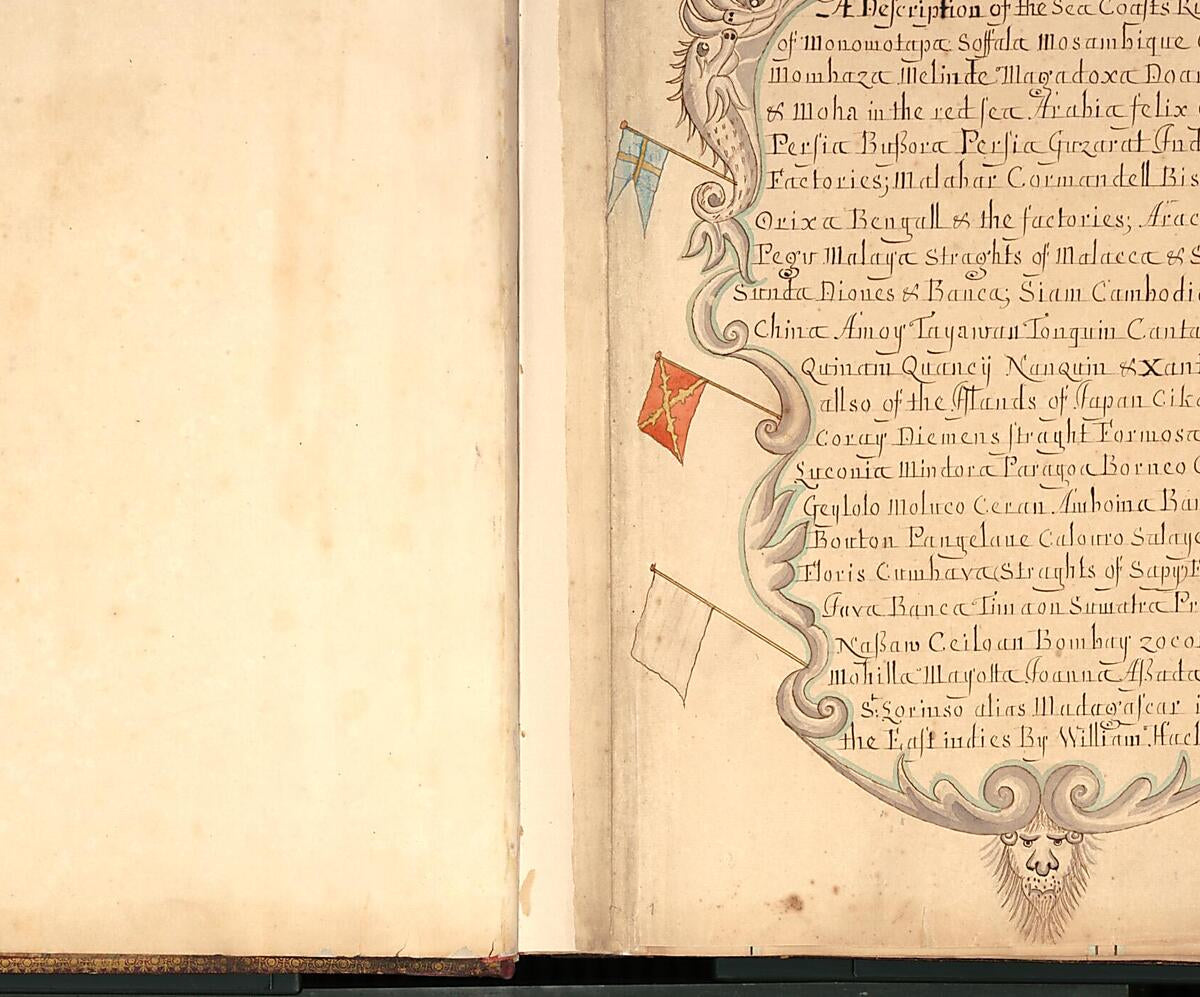 A Description of the Sea Coasts
of Monomotapa Soffala Mosambique
Mombaza Melinde Magadoxa
& Moha in the red sea Arabia felix
Persia Bußora Persia Guzarat
Factories; Malabar Cormandell
Orixa Bengall & the factories;
Pegu Malaya Straghts of Malacca &
Sunda Diones & Banca; Siam
China Amoy Tayawan Tonquin
Quinam Quancij Nanquin &
allso of the Islands of Japan
Coray Diemens straght Formosa
Luconia Mindora Paragoa Borneo
Geylolo Moluco Ceran Amboina
Bouton Pangelane Calouro
Floris Cumbava Straghts of Sapy
Java Banca Timaon Sumatra
Naßaw Ceiloan Bombay
Mohilla Mayotta Joanna
St: Lorinso alias Madagascar
the East indies By William